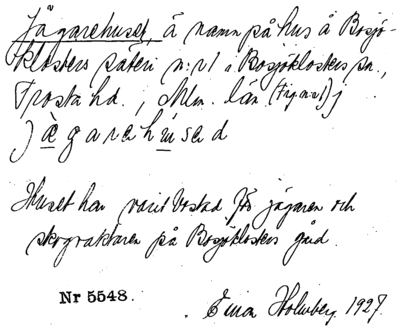 Jägarehuset, å namn på hus å Bosjö-
klosters säteri n:r 1 i Bosjöklosters sn.,
Frosta hd., Mlm. län (Fig. n:r 1) j
j ä̀ g a r e h ú s e d
Huset har varit bostad för jägaren och
skogvaktaren på Bosjöklosters gård.
Nr 5548.
Einar Holmberg 1927.